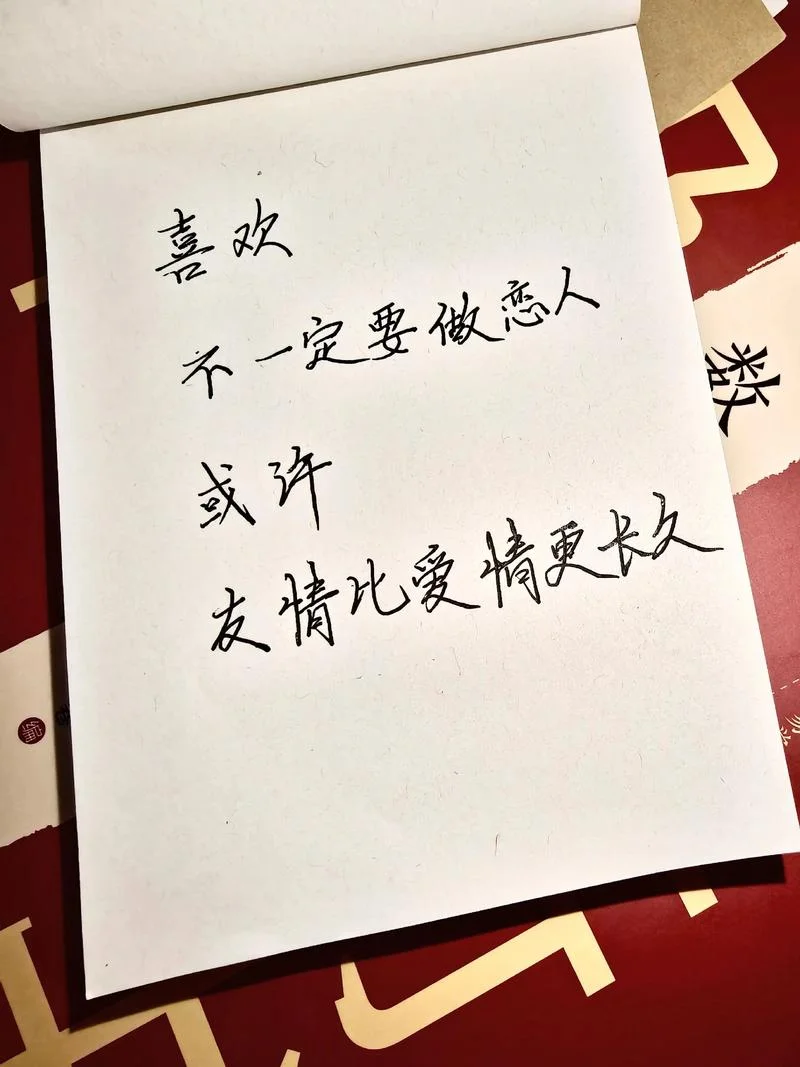 喜欢
不一定要做恋人
或许
友情比爱情更长久
数
编